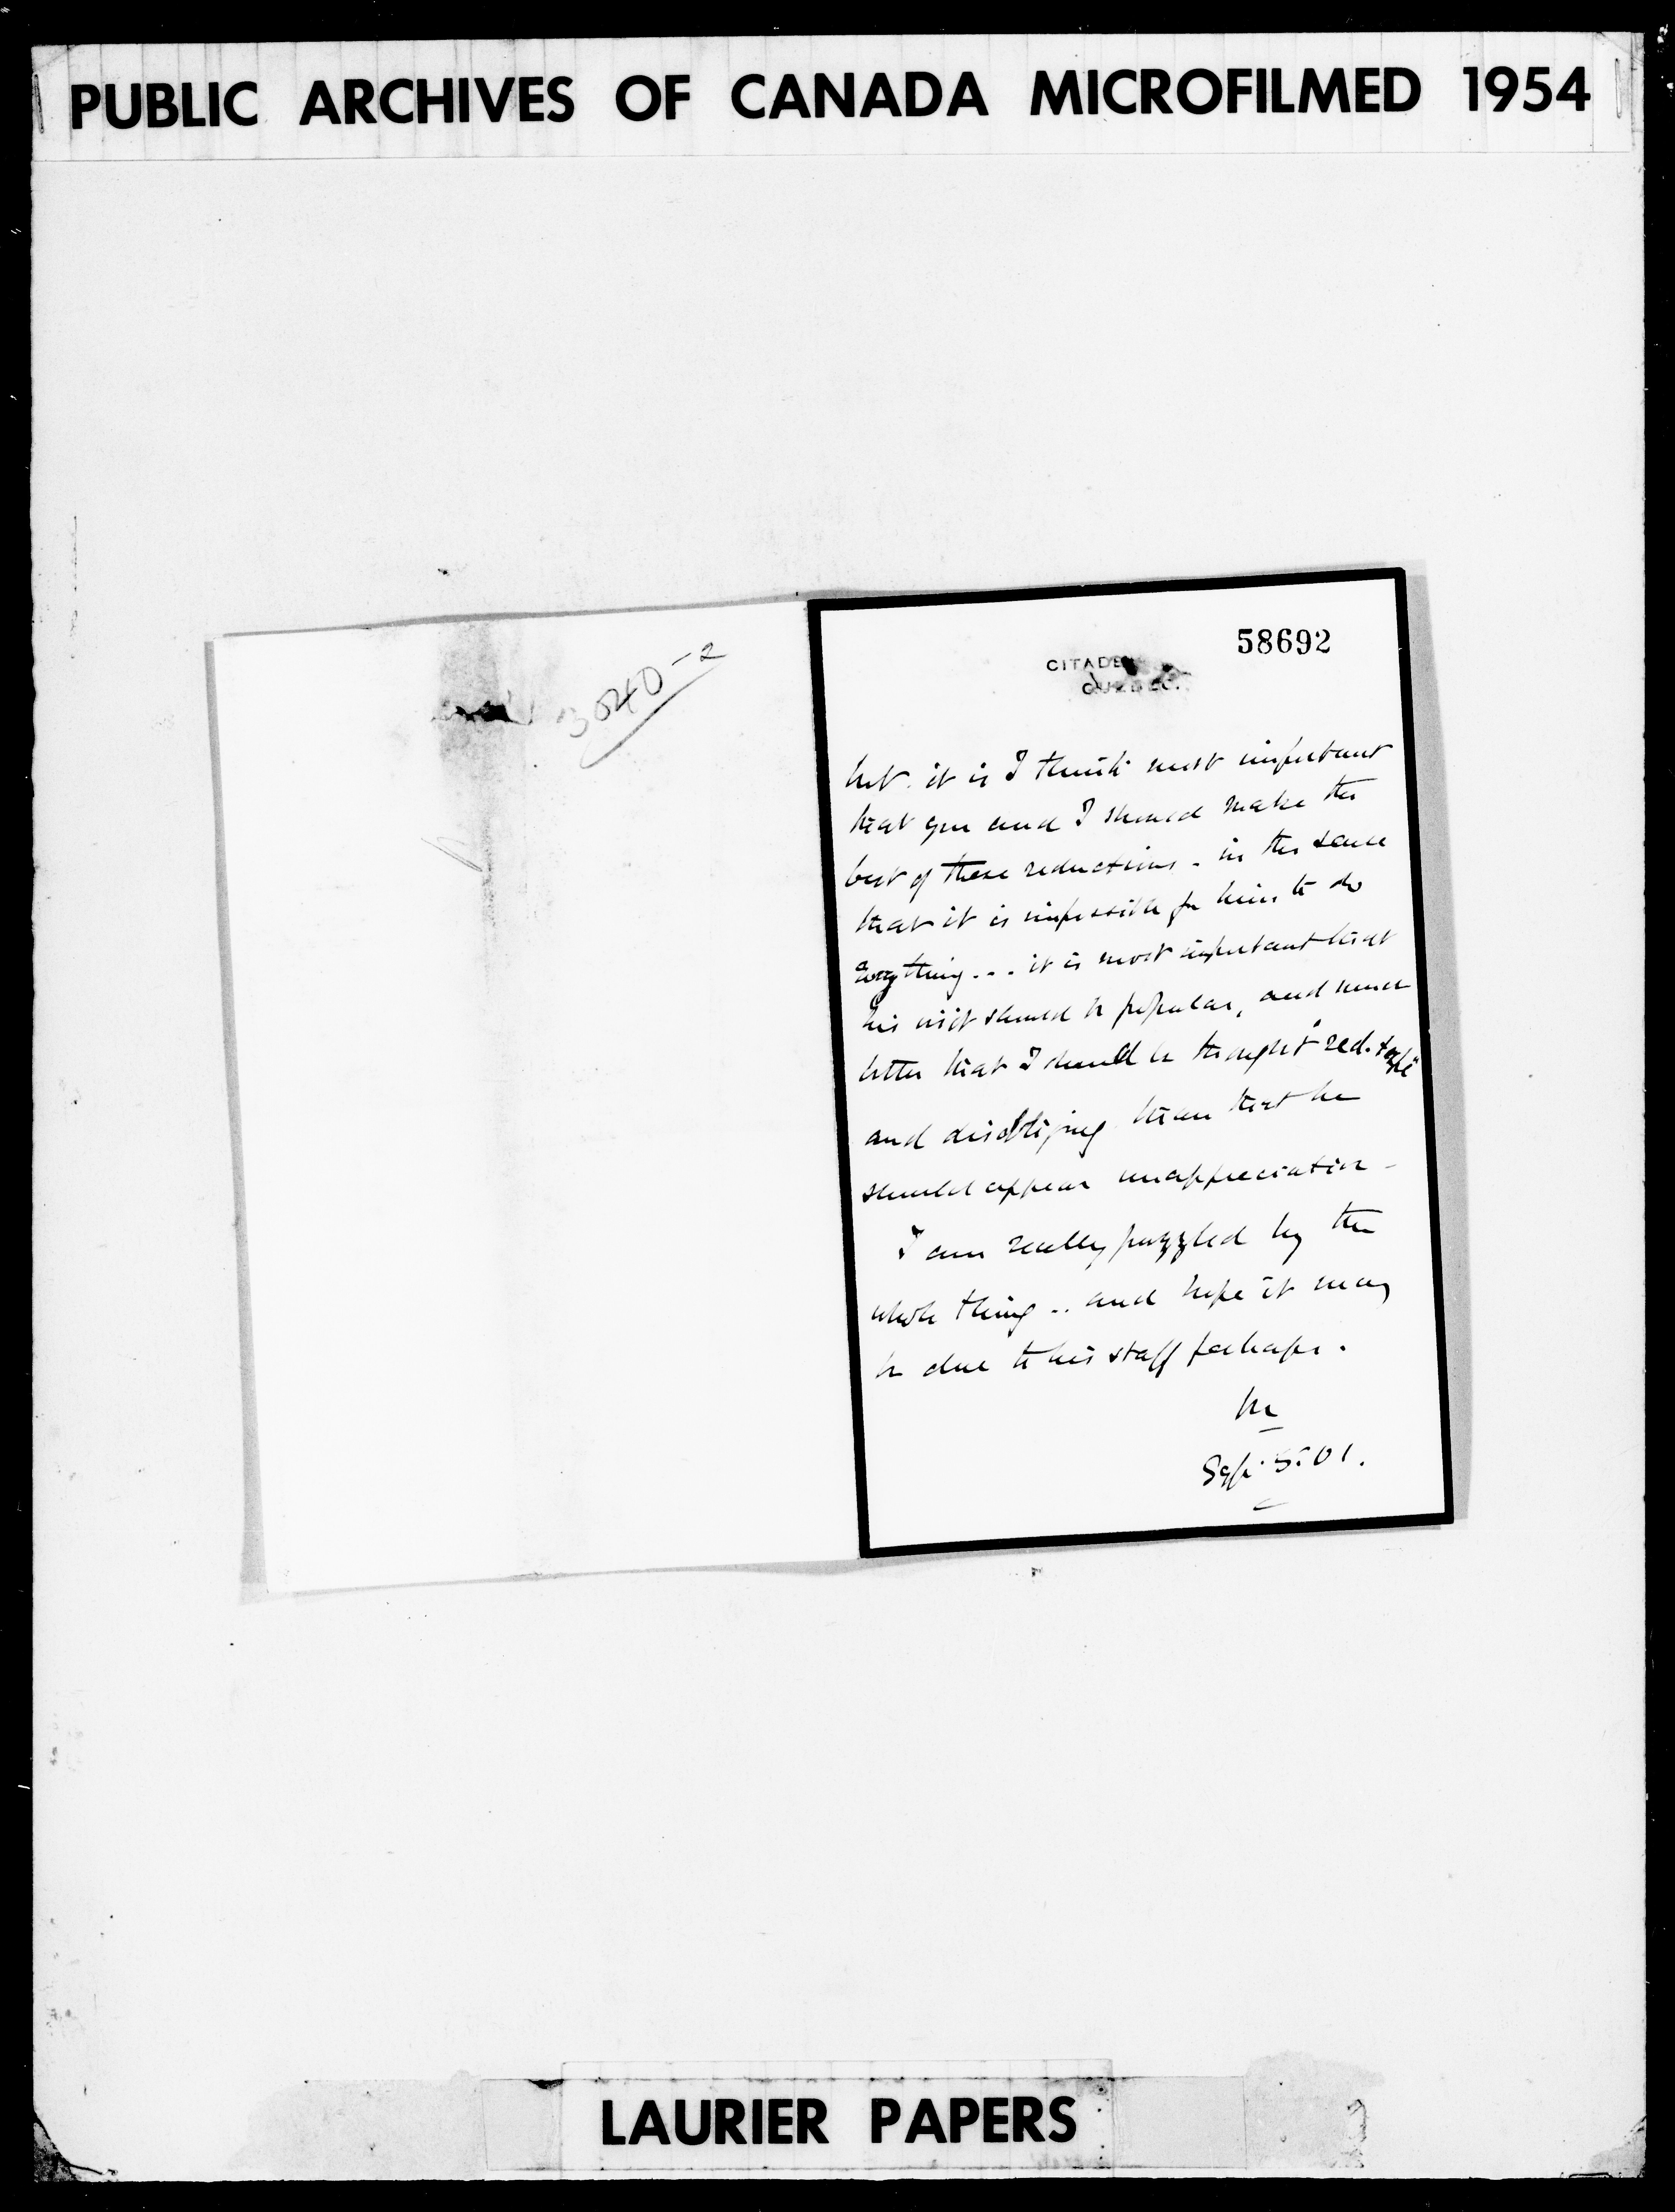 PUBLIC ARCHIVES OF CANADA MICROFILMED 1954
3040-2
58692
CITADEL
QUEBEC.
but it is I think most important
that you and I should make the
best of these reductions - in the sense
that it is impossible for him to do
anything... it is most important that
his visit should be popular, and much
better that I should be thought "red-tape"
and disobliging than that he
should appear unappreciative -
I am really puzzled by the
whole thing .. and hope it may
be due to his staff perhaps.
M
Sept. 5. 01.
LAURIER PAPERS